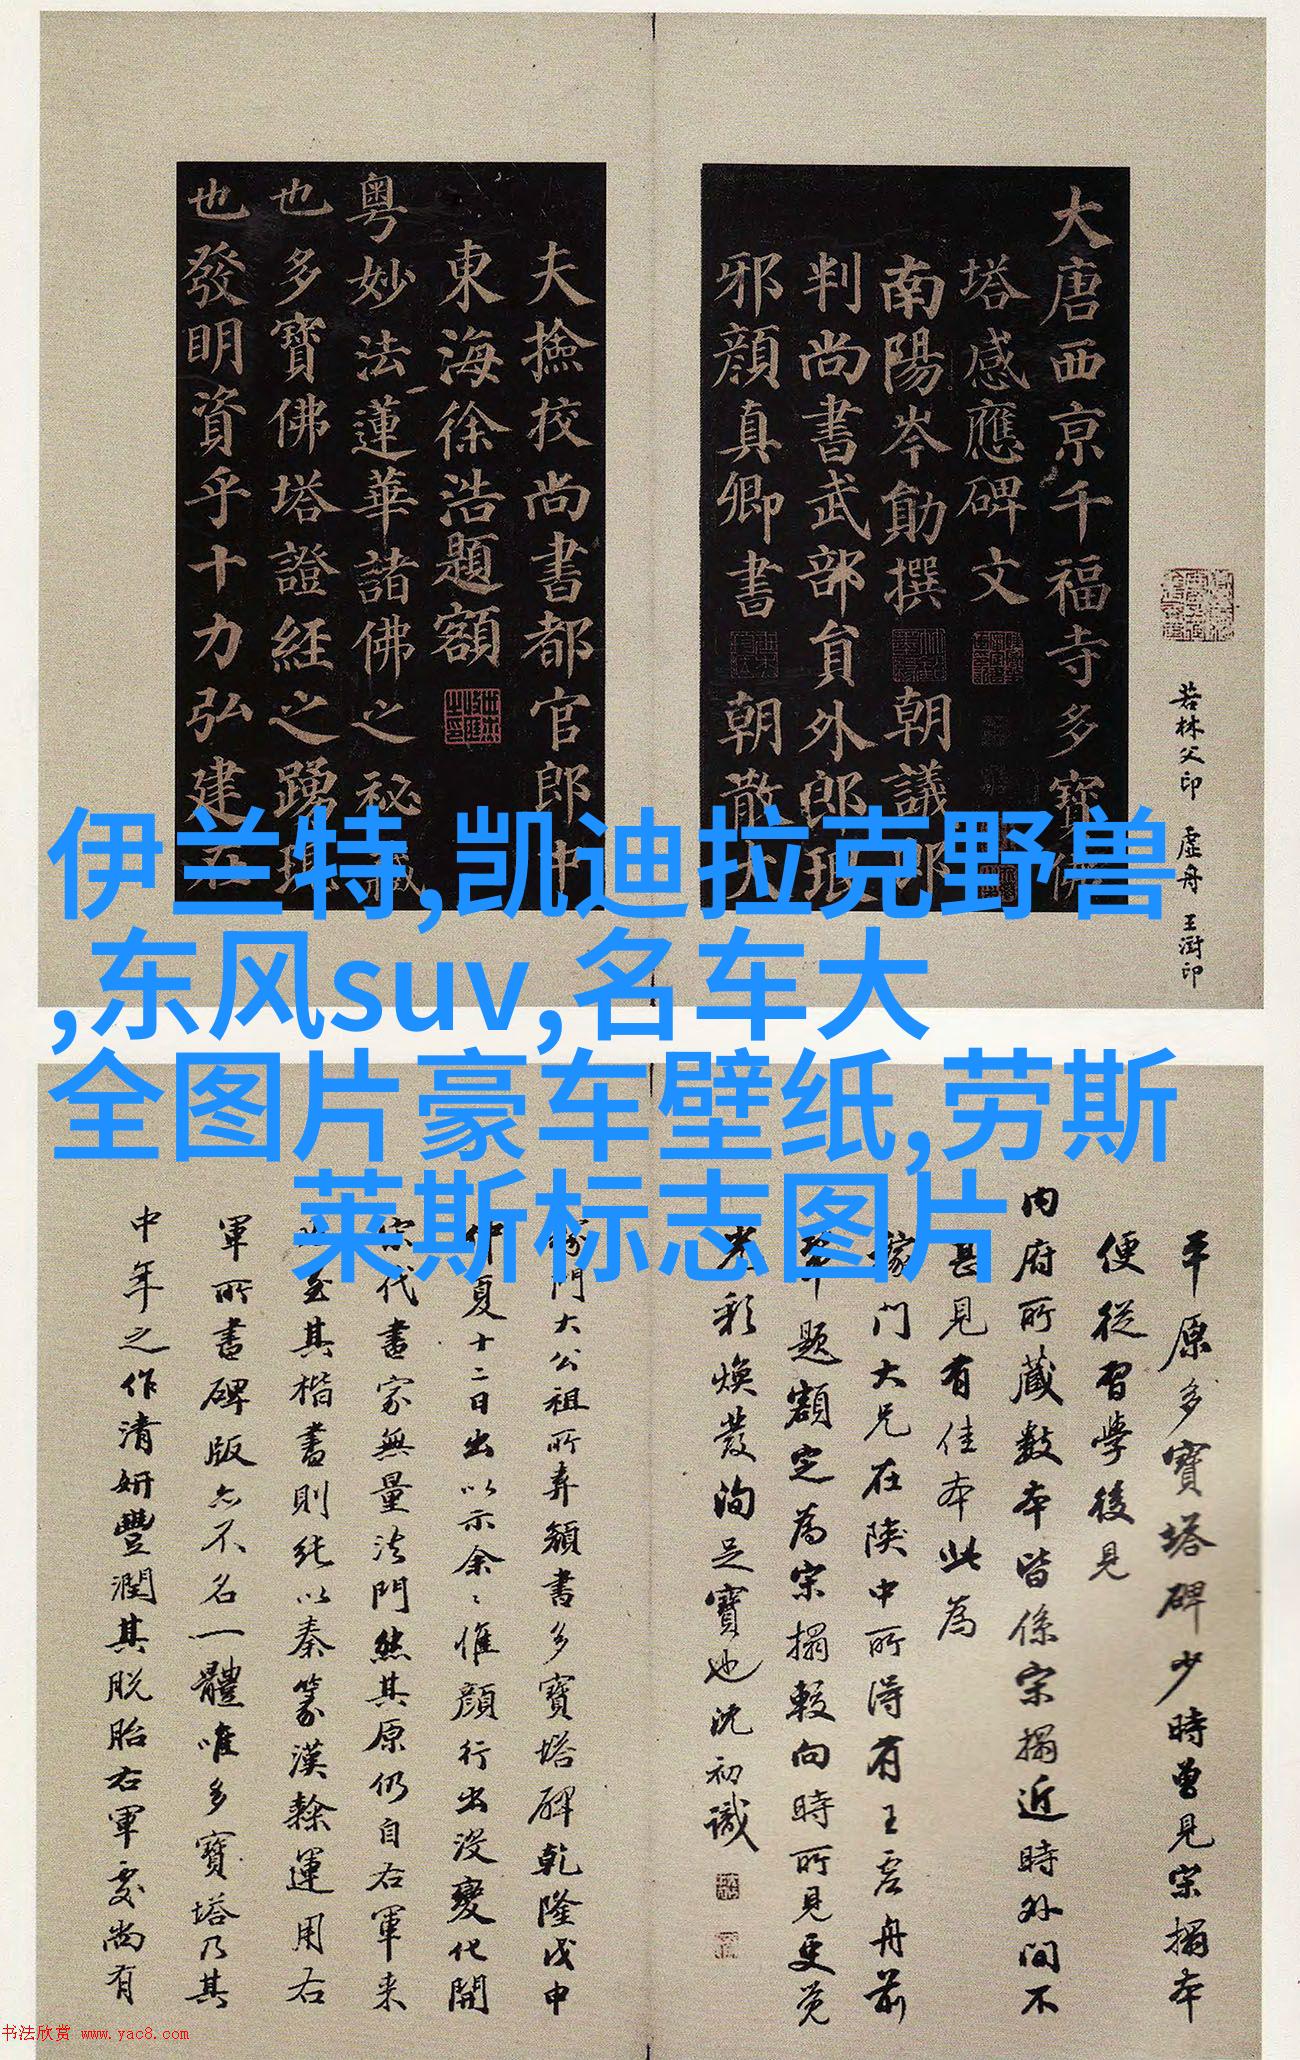 大唐西京千福寺多寶佛
塔感應碑文
南陽岑勛撰 朝議郎
判尚書武部員外郎琅
邪顏真卿書 朝散大
夫撿挍尚書都官郎中
東海徐浩題額
粤妙法蓮華諸佛之祕藏
也多寶佛塔證經之踴現
也發明資乎十力弘建在
若林父印 虛舟 王澍印
伊兰特,凯迪拉克野兽
,东风suv,名车大
全图片豪车壁纸,劳斯
莱斯标志图片
平原多寶塔碑少時曾見宗搨本
便從習學後見
内府所藏數本皆係宗搨近時外間不
甚見有佳本此為
稼门大兄在陕中所得有王虚舟前
輩題額定為宗搨較向時所見更覺
光彩焕發洵足寶也沈初識
稼門大公祖所弆顏書多寶塔碑乾隆戊申
仲夏十二日出以示余余惟顏行出没變化開
宗代書家無量法門然其原仍自右軍来
至其楷書則純以秦篆漢隸運用右
軍所書碑版亦不名一體唯多寶塔乃其
中年之作清妍豐潤其脱胎右軍處尚有
书法欣赏 www.yac8.com